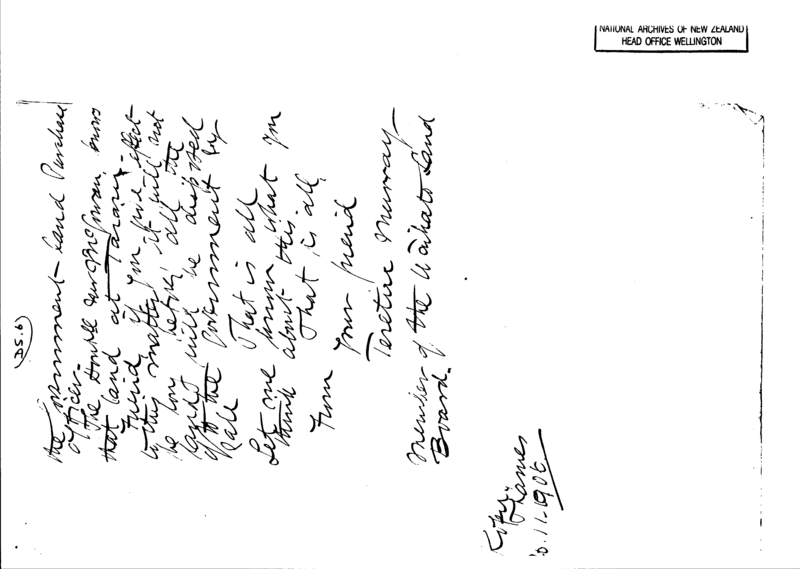 NATIONAL ARCHIVES OF NEW ZEALAND
HEAD OFFICE WELLINGTON
D5.6
the Government Land Purchase
Officer.
The Honble Mr McGowan knows
that land at
Friend, if you give effect
to this matter it will not
be long before all the
lands will be disposed
of to the Government by
sale
That is all
Let me know what you
think about this.
That is all,
From
Your friend
Teretiu Murray
Member of the Waikato Land
Board.
Thames
11-1906